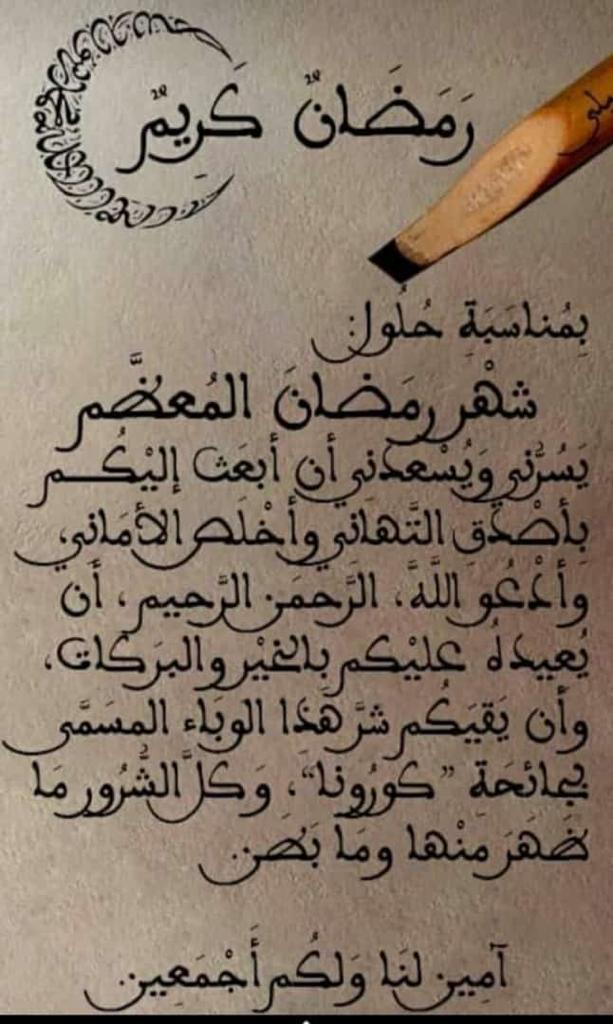 رَمَضَانٌ كَرِيمٌ
بِمُناسَبَةِ حُلُولِ:
شهْر رمَضانَ المُعظَّم
يَسُرُّني وَيُسْعدُني أن أبعَث إليْكُم
بأصْدَق التَّهاني وأخْلَص الأمَاني،
وَأدْعُو اللَّهَ، الرَّحمَن الرَّحيم، أن
يُعيدهُ عليْكم بالخيْر والبَركات،
وأن يَقيَكُم شرَّ هَذا الوبَاء المسَمَّى
بجَائحَة "كورُونا"، وَكلَّ الشُّرُور مَا
ظهَرَ منْها ومَا بَطَن.
آمِين لنَا وَلكُم أَجْمَعِين.